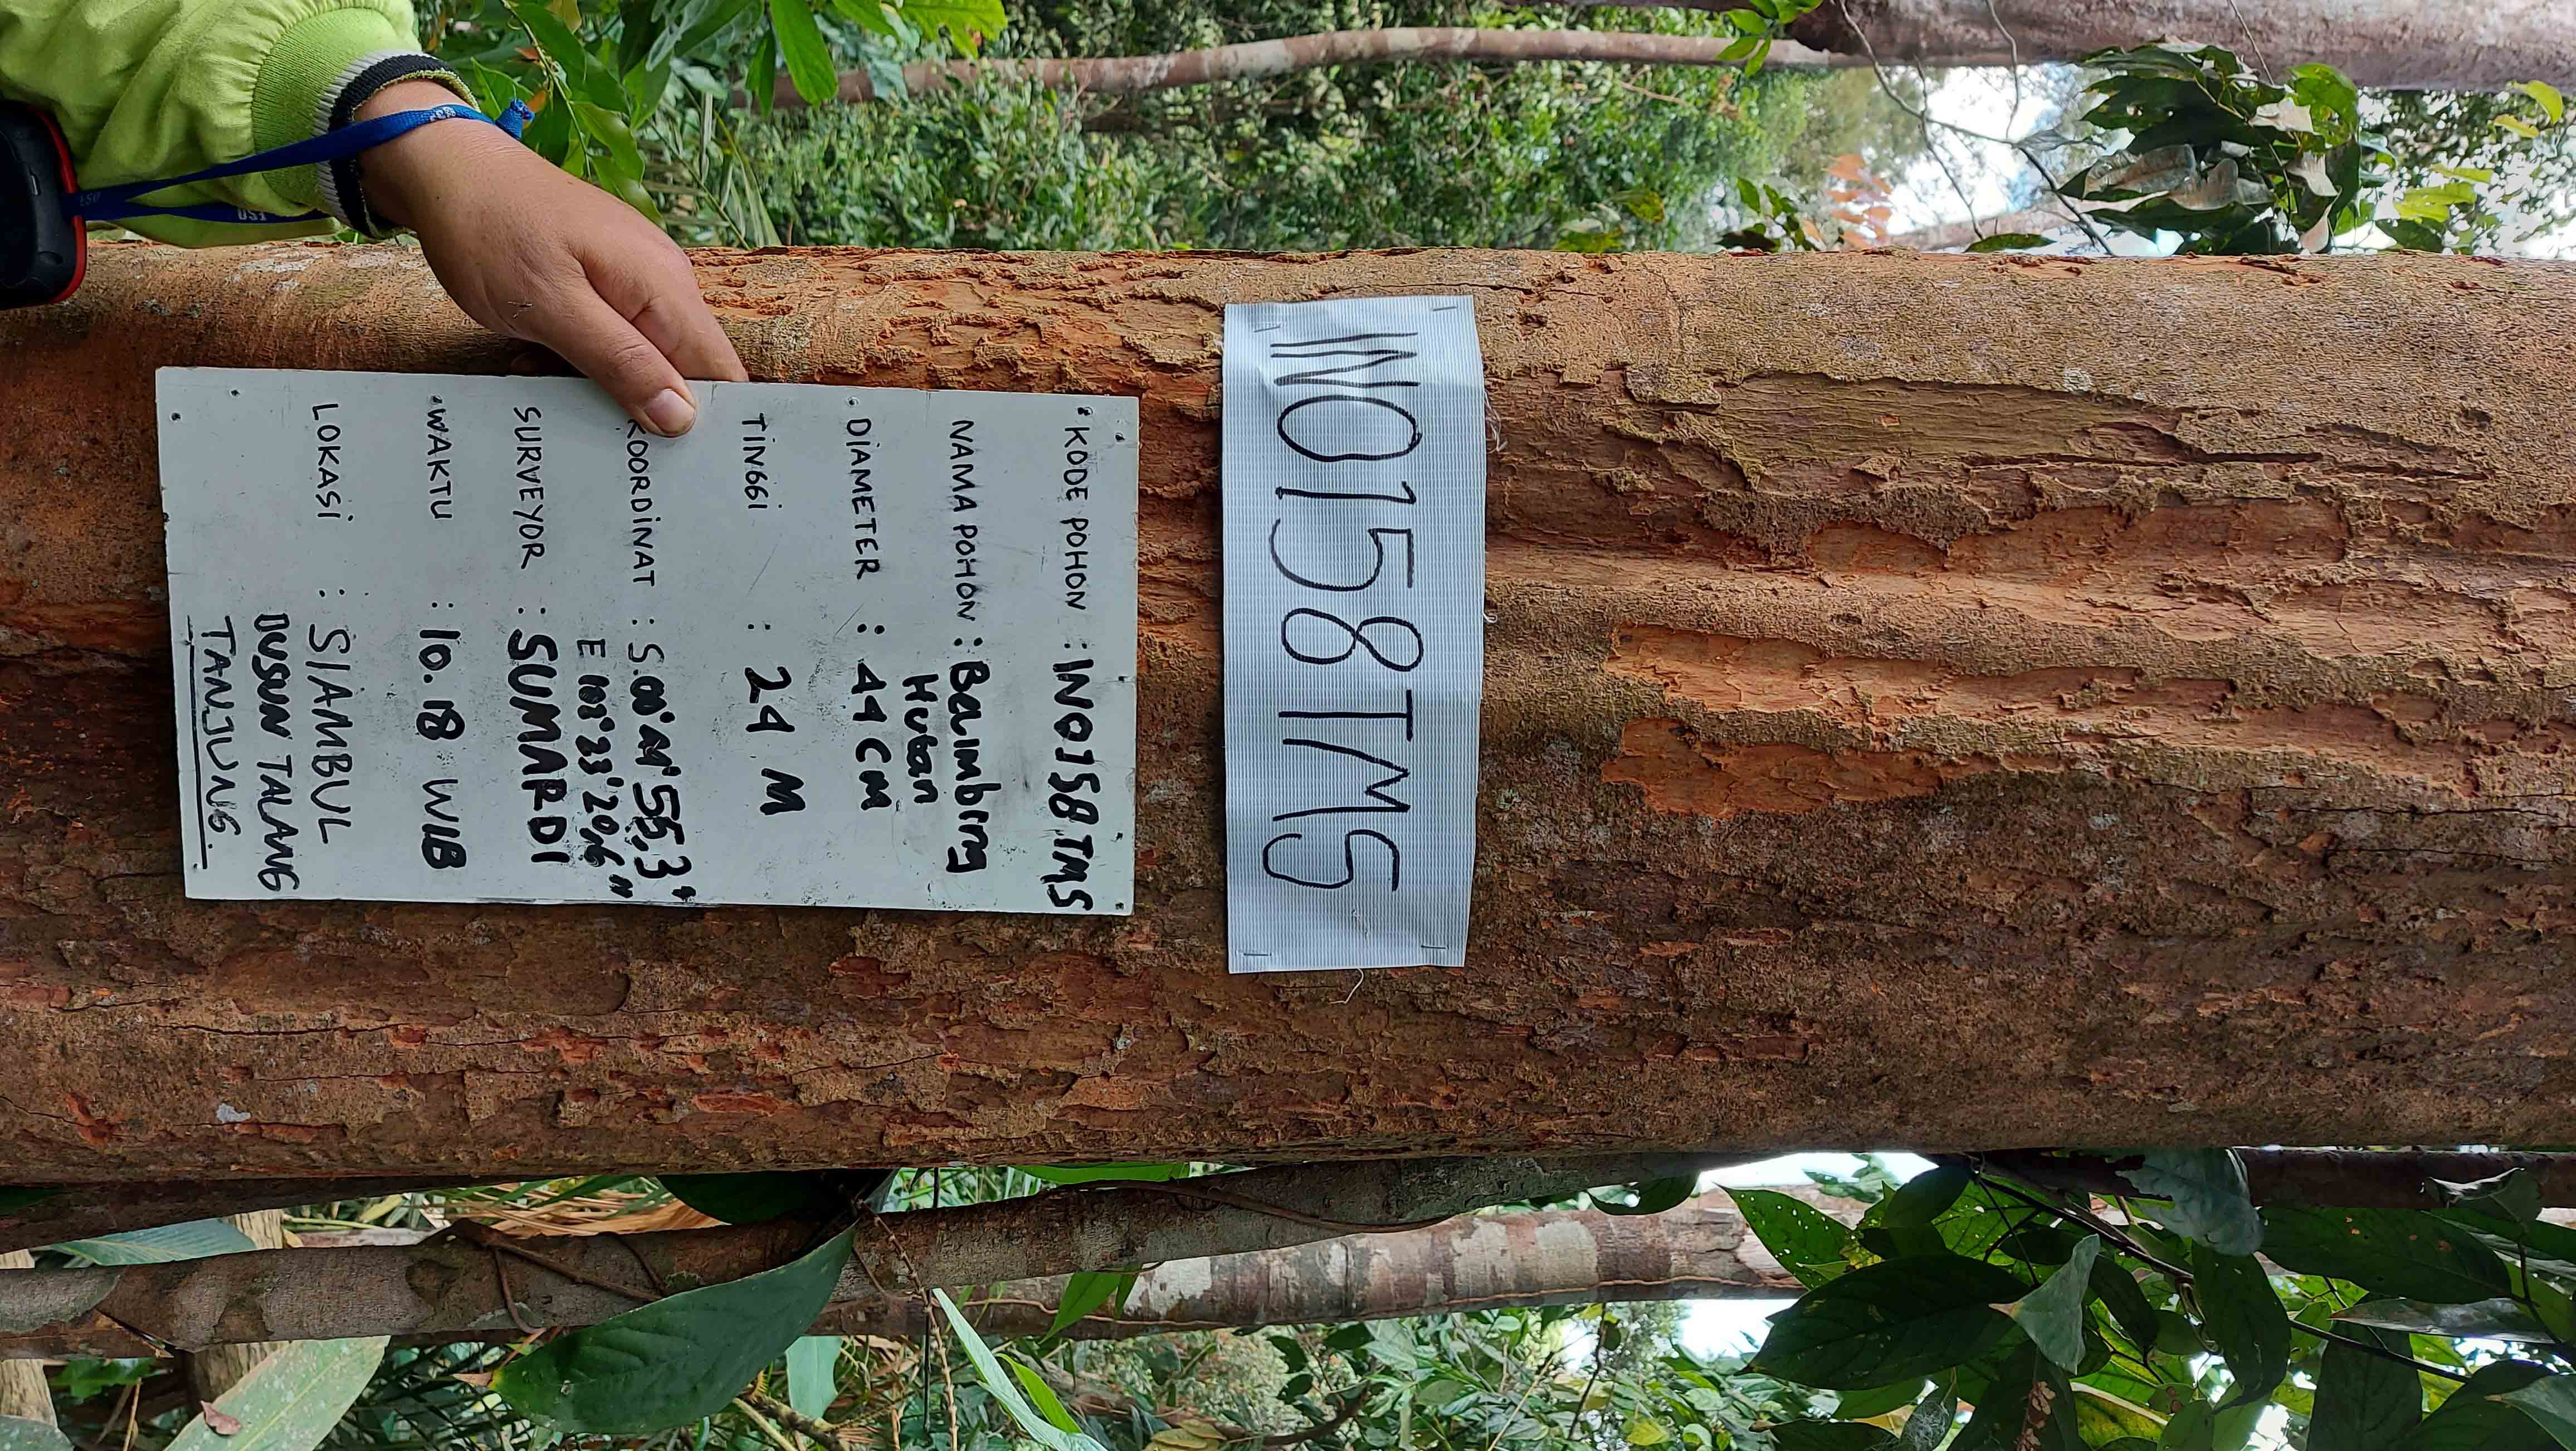 INO158TMS
KODE POHON : INO158TMS
NAMA POHON : Belimbing
Hutan
DIAMETER : 44 CM
TINGGI : 24 M
KOORDINAT : S 00° 44' 55,3"
E 102° 33' 20,6"
SURVEYOR : SUMARDI
WAKTU : 10.18 WIB
LOKASI : SIAMBUL
DUSUN TALANG
TANJUNG.